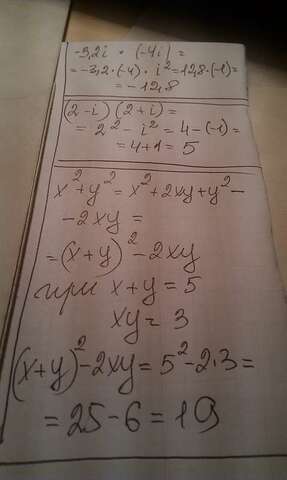 -3,2i · (-4i) =
= -3,2 · (-4) · i² = 12,8 · (-1) =
= -12,8
(2-i)(2+i) =
= 2² - i² = 4 - (-1) =
= 4+1 = 5
x² + y² = x² + 2xy + y² -
- 2xy =
= (x+y)² - 2xy
при x + y = 5
xy = 3
(x+y)² - 2xy = 5² - 2·3 =
= 25 - 6 = 19